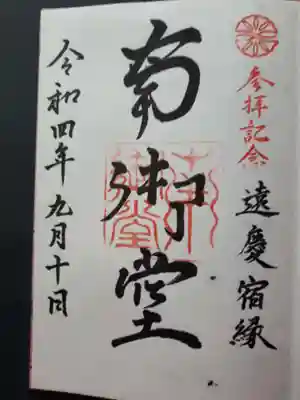 参拝記念
遠慶宿縁
南御堂
令和四年九月十日